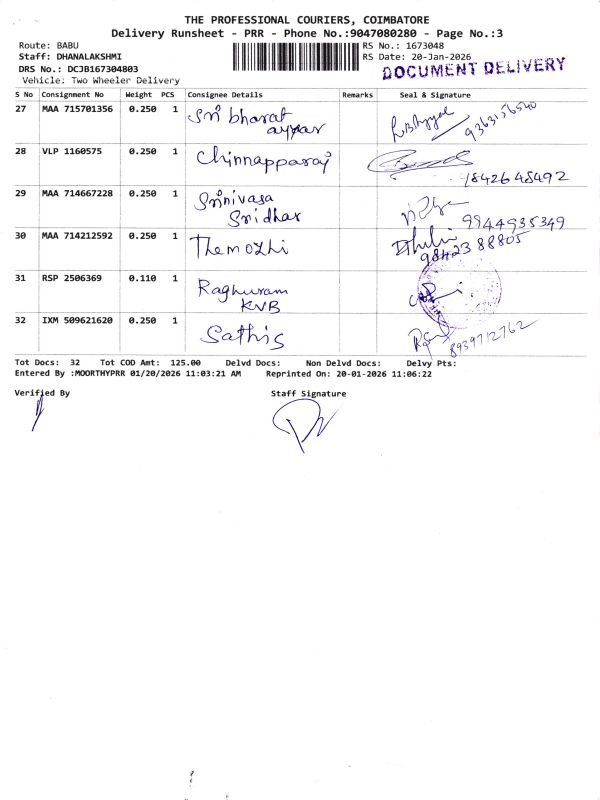 THE PROFESSIONAL COURIERS, COIMBATORE
Delivery Runsheet - PRR - Phone No.:9047080280 - Page No.:3
Route: BABU
Staff: DHANALAKSHMI
DRS No.: DCJB167304803
Vehicle: Two Wheeler Delivery
RS No.: 1673048
RS Date: 20-Jan-2026
DOCUMENT DELIVERY
S No Consignment No Weight PCS Consignee Details Remarks Seal & Signature
27 MAA 715701356 0.250 1 Sri bharat
9363156540
28 VLP 1160575 0.250 1 Chinnapparaj
9842645492
29 MAA 714667228 0.250 1 Srinivasa
Sridhar
9944935349
30 MAA 714212592 0.250 1 Themozhi
98423 88805
31 RSP 2506369 0.110 1 Raghuram
KVB
32 IXM 509621620 0.250 1 Sathis
8939712762
Tot Docs: 32 Tot COD Amt: 125.00 Delvd Docs: Non Delvd Docs: Delvy Pts:
Entered By :MOORTHYPRR 01/20/2026 11:03:21 AM Reprinted On: 20-01-2026 11:06:22
Verified By Staff Signature